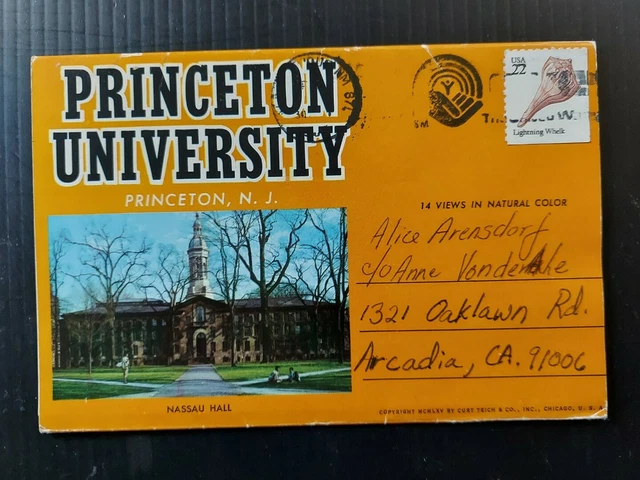 PRINCETON
UNIVERSITY
PRINCETON, N. J.
USA
22
Lightning Whelk
14 VIEWS IN NATURAL COLOR
Alice Arensdorf
c/o Anne Vonderahe
1321 Oaklawn Rd.
Arcadia, CA. 91006
NASSAU HALL
COPYRIGHT MCMLXV BY CURT TEICH & CO., INC., CHICAGO, U. S. A